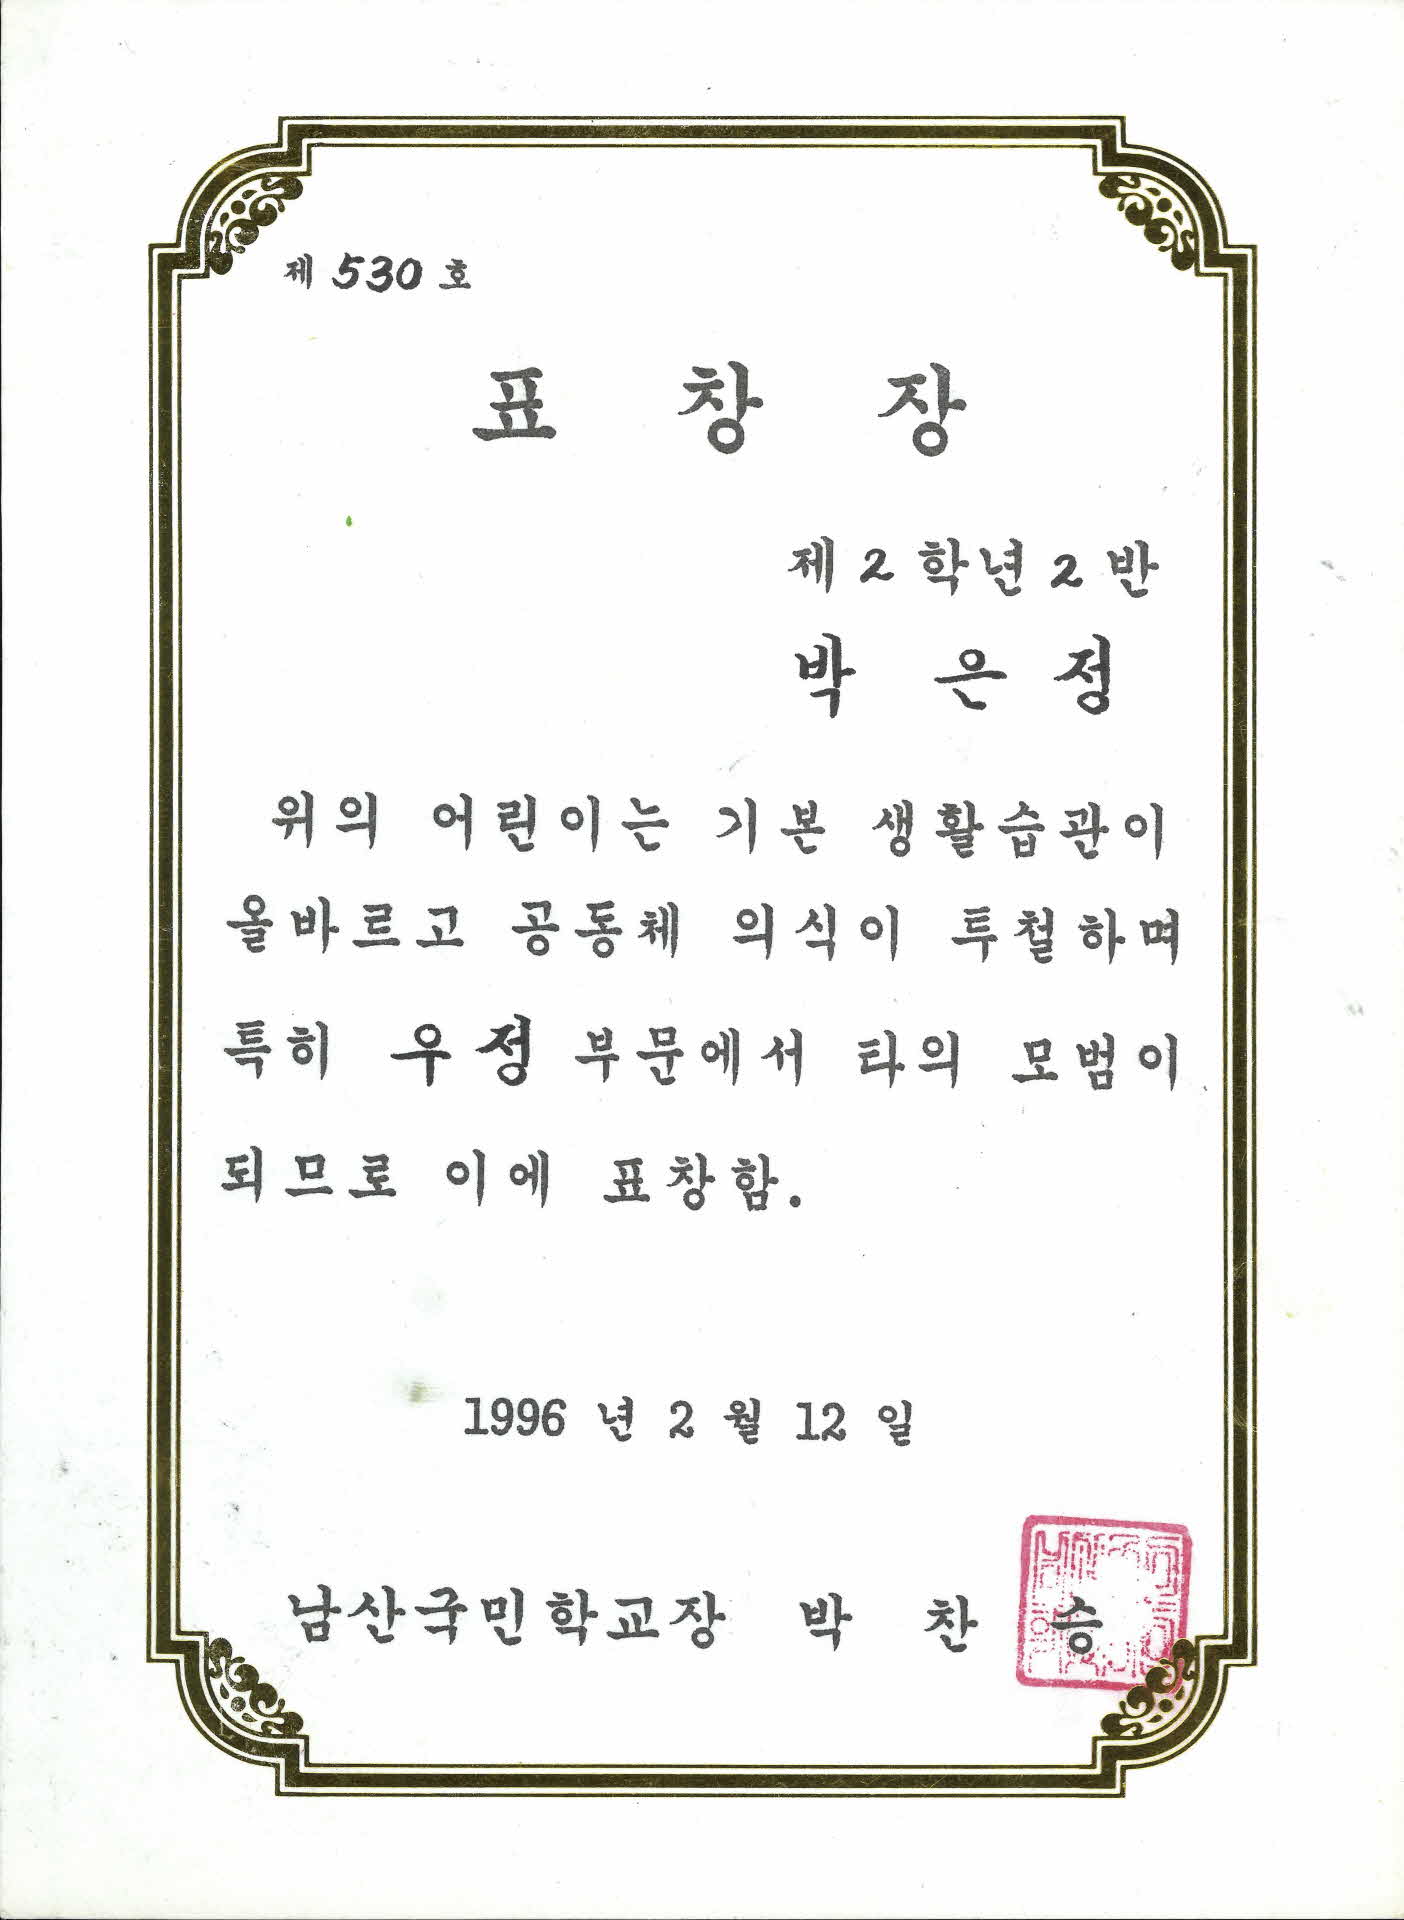 제 530 호
표 창 장
제 2 학년 2 반
박 은 정
위의 어린이는 기본 생활습관이
올바르고 공동체 의식이 투철하며
특히 우정 부문에서 타의 모범이
되므로 이에 표창함.
1996 년 2 월 12 일
남산국민학교장 박 찬 승